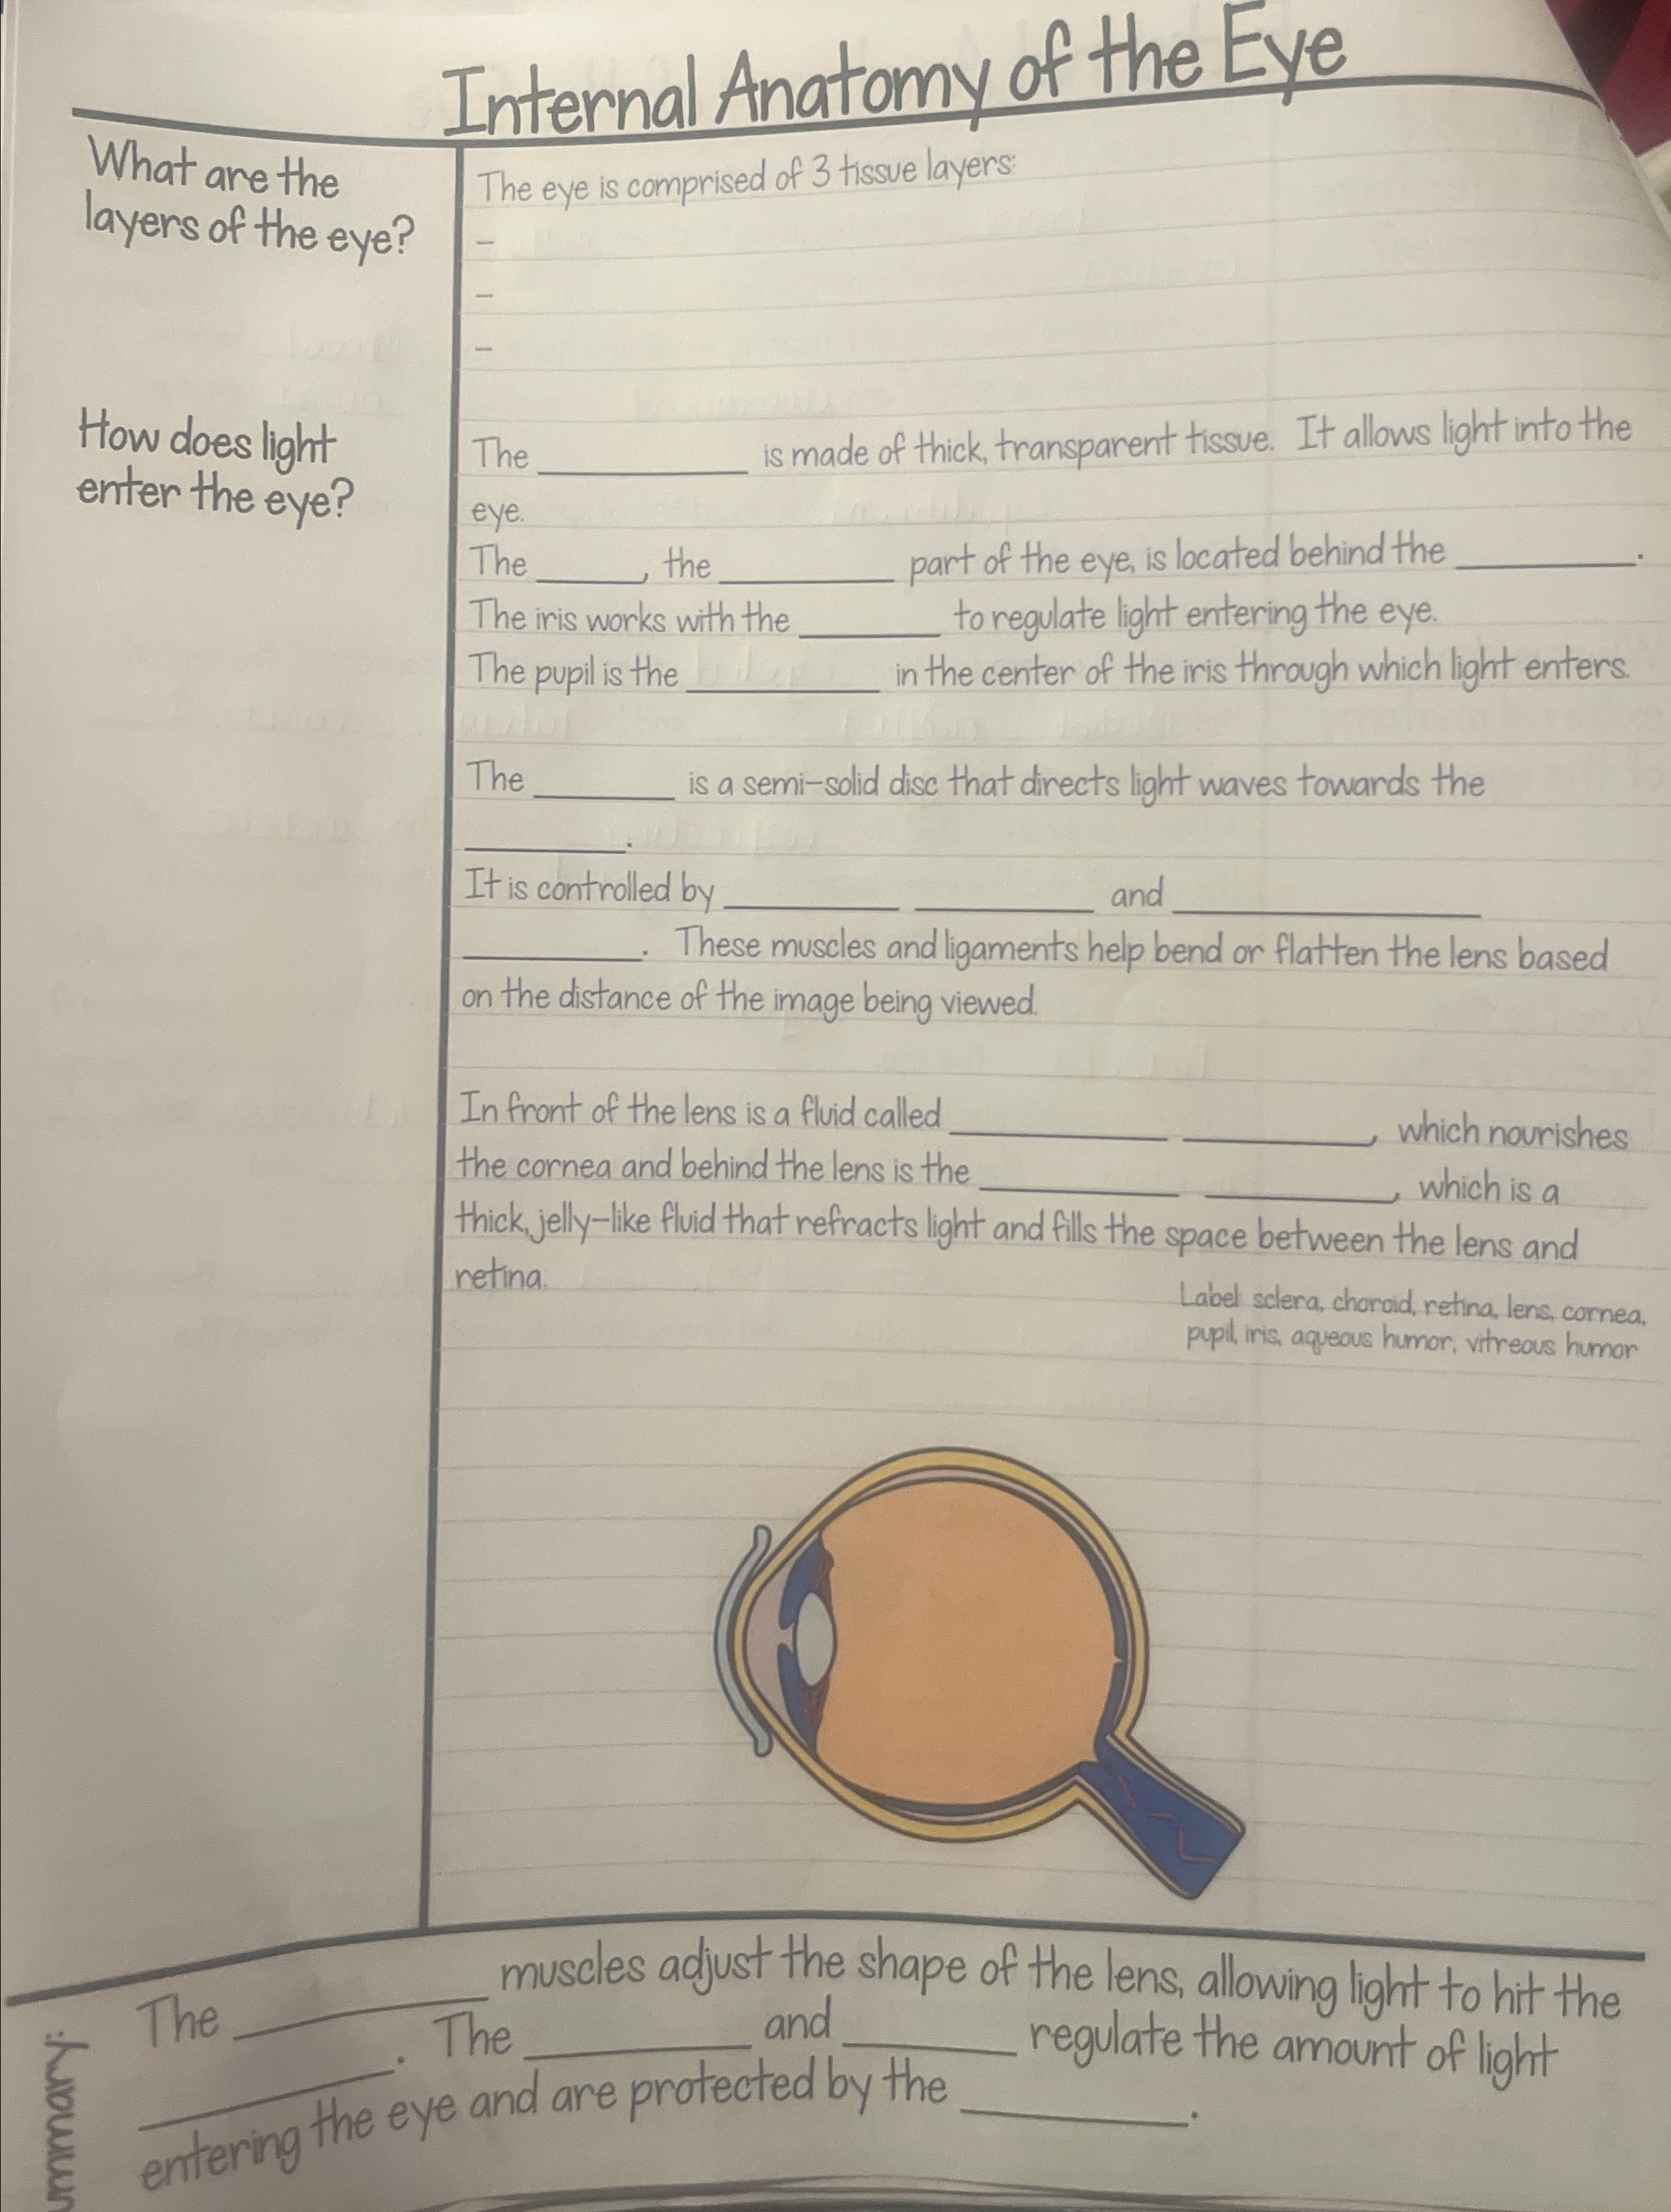 Internal Anatomy of the Eye
What are the
layers of the eye?
The eye is comprised of 3 tissue layers:
-
-
-
How does light
enter the eye?
The __________ is made of thick, transparent tissue. It allows light into the
eye.
The _____, the ________ part of the eye, is located behind the ________.
The iris works with the _______ to regulate light entering the eye.
The pupil is the _________ in the center of the iris through which light enters.
The _______ is a semi-solid disc that directs light waves towards the
________.
It is controlled by ________ ________ and ______________
________. These muscles and ligaments help bend or flatten the lens based
on the distance of the image being viewed.
In front of the lens is a fluid called __________ _________, which nourishes
the cornea and behind the lens is the _________ _________, which is a
thick, jelly-like fluid that refracts light and fills the space between the lens and
retina.
Label: sclera, choroid, retina, lens, cornea,
pupil, iris, aqueous humor, vitreous humor
ummary:
The __________ muscles adjust the shape of the lens, allowing light to hit the
__________. The _________ and _______ regulate the amount of light
entering the eye and are protected by the _________.